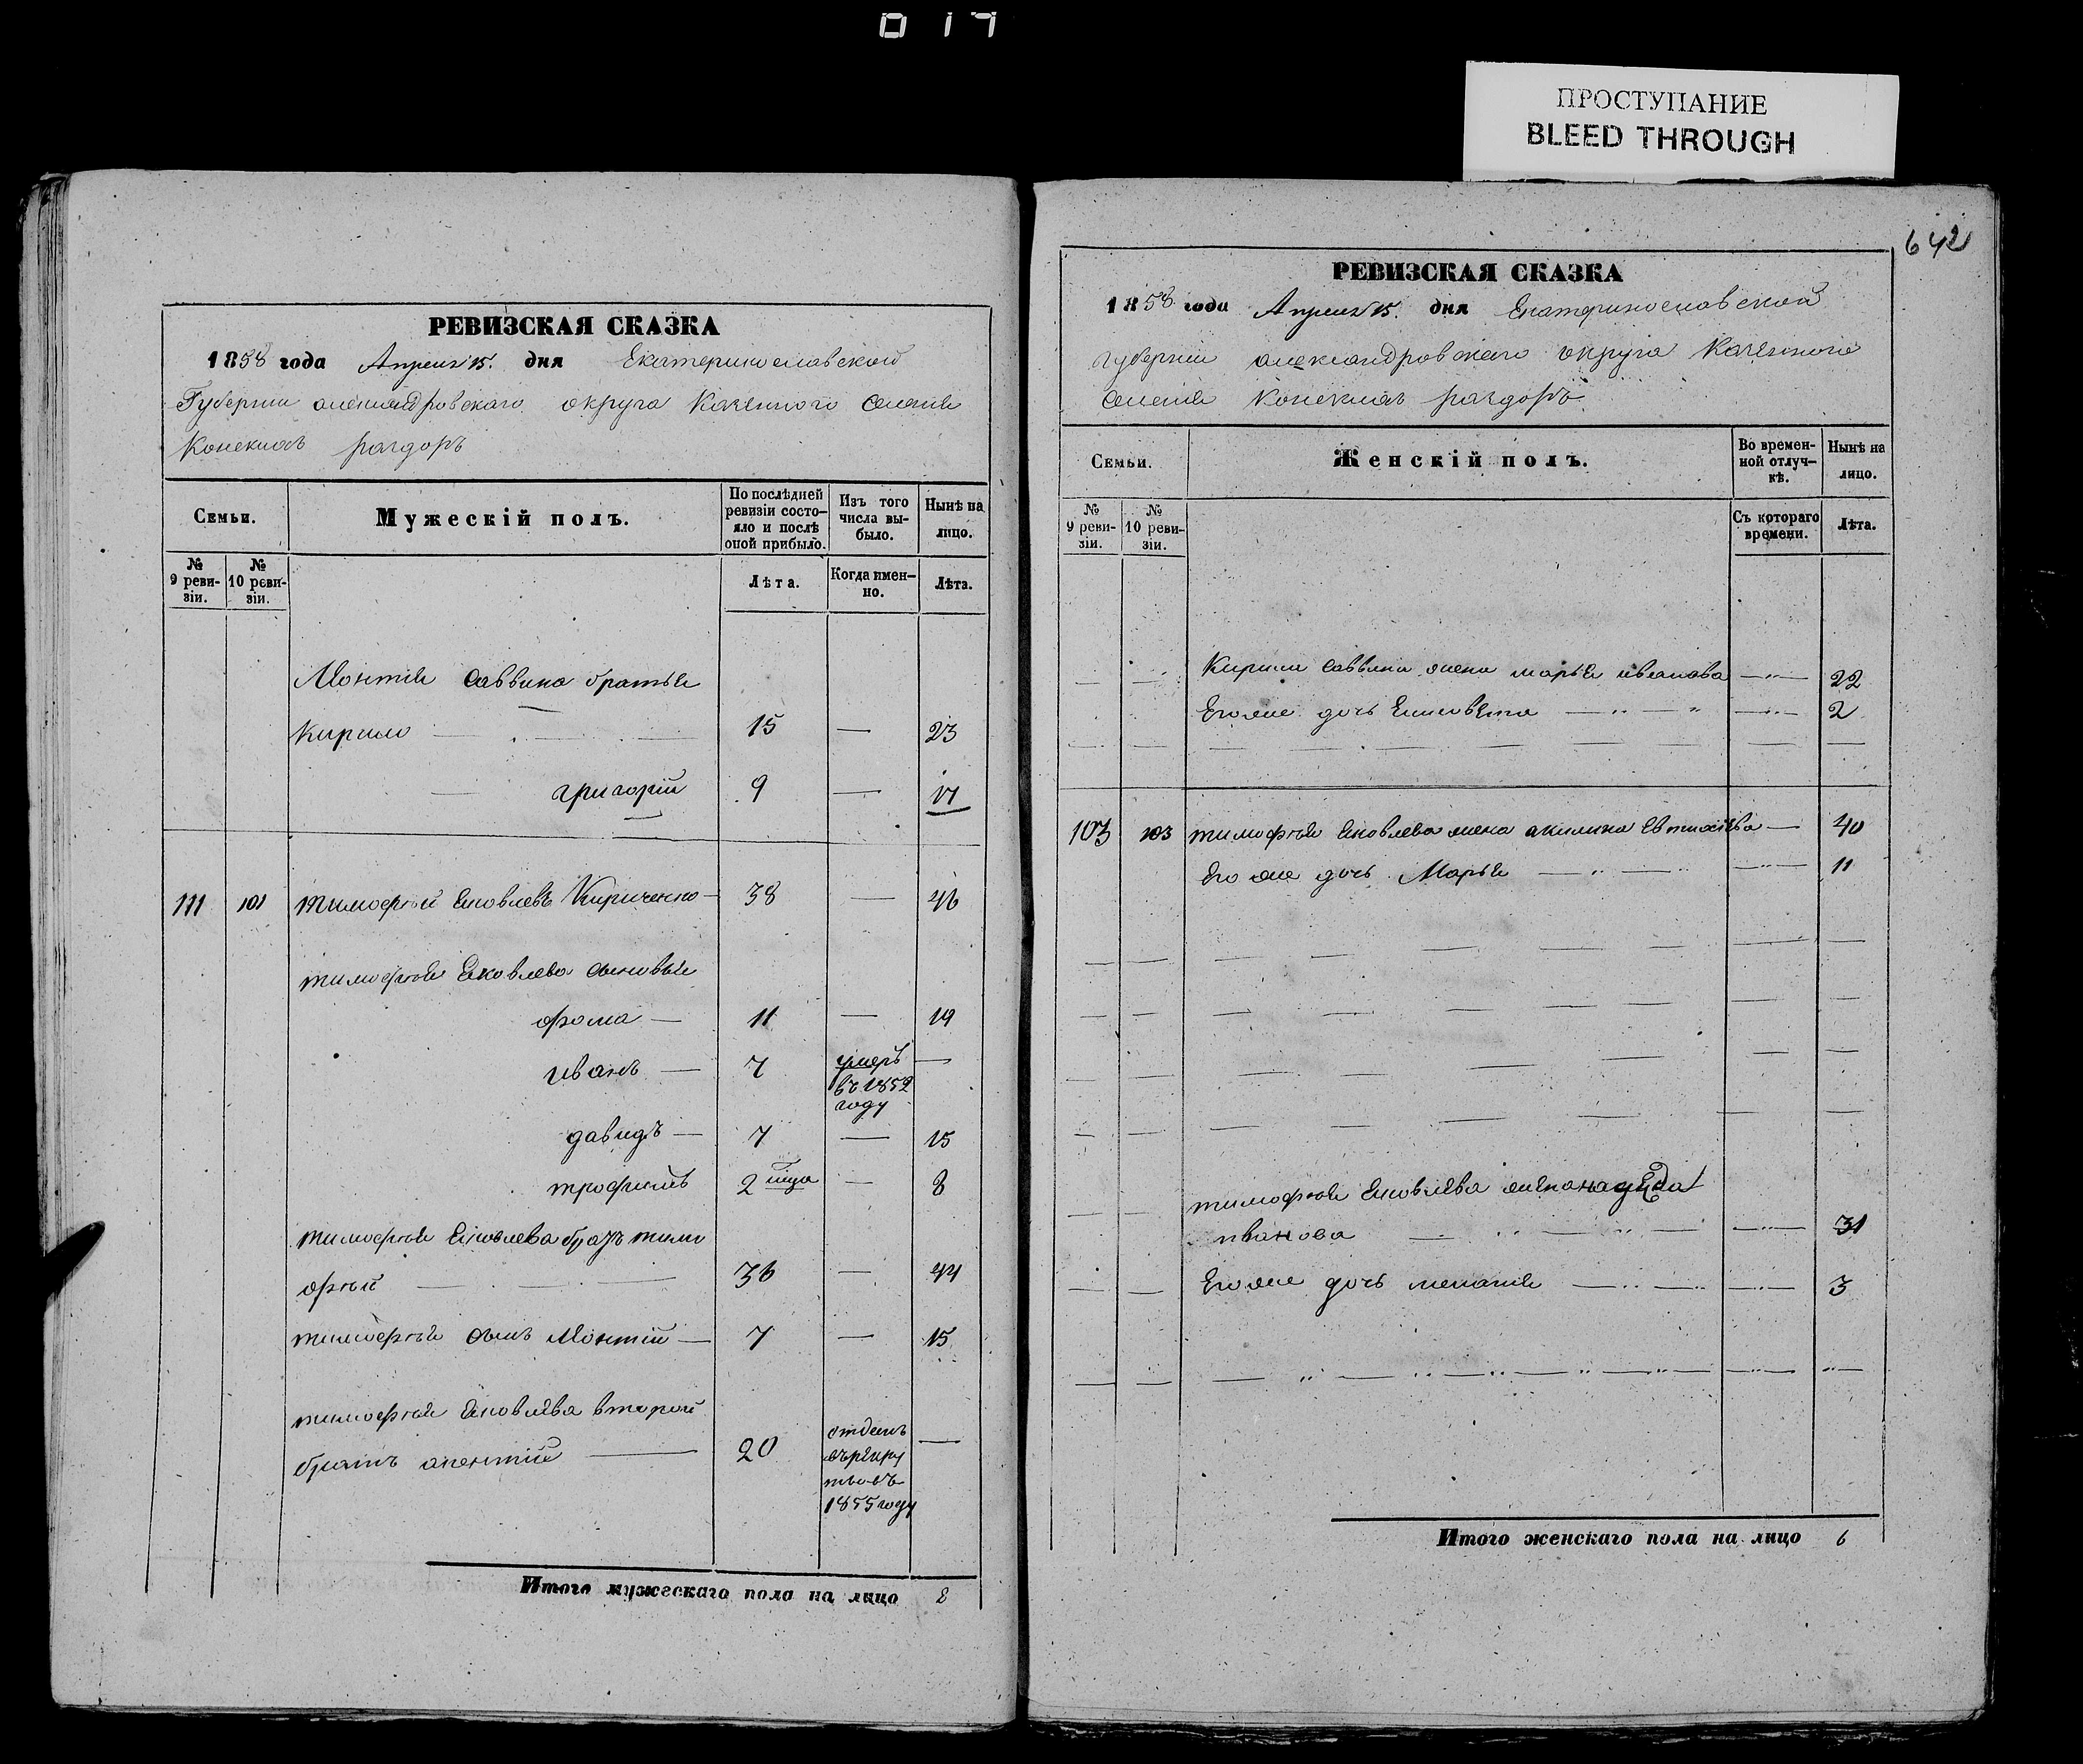 017
ПРОСТУПАНИЕ
BLEED THROUGH
РЕВИЗСКАЯ СКАЗКА
1858 года Апреля 15. дня Екатеринославской
Губернии александровскаго округа Казенного Селенія
Конскихъ раздоръ
Семьи.
Мужескій полъ.
По послѣдней ревизіи состояло и послѣ оной прибыло.
Изъ того числа выбыло.
Нынѣ на лицо.
№ 9 ревизіи.
№ 10 ревизіи.
Лѣта.
Когда именно.
Лѣта.
Саввина братья
Кирило 15 — 23
григорій 9 — 17
111 101 тимофѣй Яковлевъ Кириченко 38 — 46
тимофѣя Яковлева сыновья
фома — 11 — 19
иванъ — 7 умеръ въ 1852 году —
давидъ — 7 — 15
трофимъ 2 — 8
тимофѣя Яковлева братъ тимо
фѣй 36 — 44
тимофѣя сынъ 7 — 15
тимофѣя Яковлева второй
братъ 20 1855 году —
Итого мужескаго пола на лицо 8
642
РЕВИЗСКАЯ СКАЗКА
1858 года Апреля 15. дня Екатеринославской
губерніи александровскаго округа Казенного
Селенія Конскихъ раздоръ
Семьи.
Женскій полъ.
Во временной отлучкѣ.
Нынѣ на лицо.
№ 9 ревизіи.
№ 10 ревизіи.
Съ котораго времени.
Лѣта.
Кирила Саввина жена марья иванова — 22
Его же дочь Елисовѣта — 2
103 103 тимофѣя Яковлева жена акилина — 40
Его же дочь Марья — 11
тимофѣя Яковлева жена
иванова — 31
Его же дочь меланія — 3
Итого женскаго пола на лицо 6